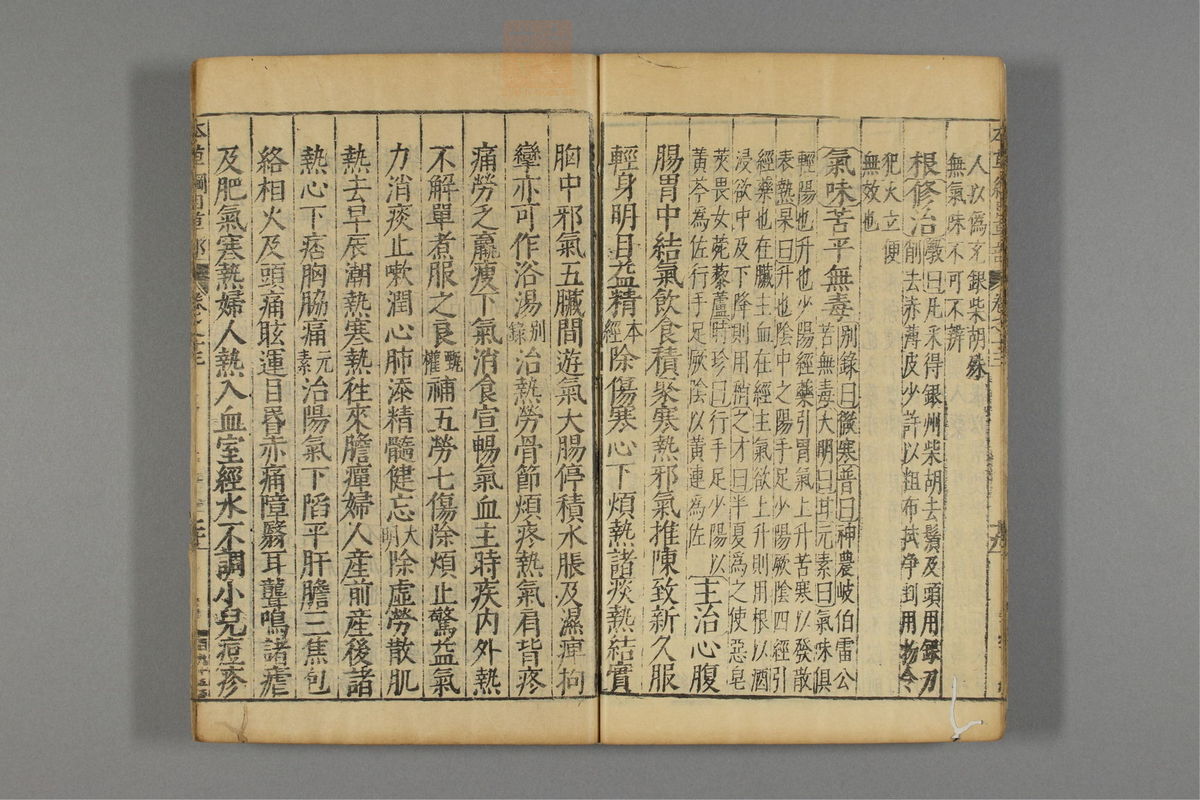 人以爲充銀柴胡
無氣味不可不辨
根修治
斆曰凡采得銀州柴胡去鬚及頭用銀刀
削去赤薄皮少許以粗布拭净剉用勿令
犯火立便
無效也
氣味苦平無毒
別録曰微寒普曰神農岐伯雷公
苦無毒大明曰甘元素曰氣味俱
輕陽也升也少陽經藥引胃氣上升苦寒以發散
表熱杲曰升也陰中之陽手足少陽厥陰四經引
經藥也在臟主血在經主氣欲上升則用根以酒
浸欲中及下降則用梢之才曰半夏爲之使惡皂
莢畏女菀藜蘆時珍曰行手足少陽以
黄芩爲佐行手足厥陰以黄連爲佐
主治心腹
腸胃中結氣飲食積聚寒熱邪氣推陳致新久服
輕身明目益精本經除傷寒心下煩熱諸痰熱結實
胸中邪氣五臟間遊氣大腸停積水脹及濕痺拘
攣亦可作浴湯別録治熱勞骨節煩疼熱氣肩背疼
痛勞乏羸瘦下氣消食宣暢氣血主時疾内外熱
不解單煮服之良甄權補五勞七傷除煩止驚益氣
力消痰止嗽潤心肺添精髓健忘大明除虚勞散肌
熱去早辰潮熱寒熱徃來膽癉婦人産前産後諸
熱心下痞胸脇痛元素治陽氣下陷平肝膽三焦包
絡相火及頭痛眩運目昏赤痛障翳耳聾鳴諸瘧
及肥氣寒熱婦人熱入血室經水不調小兒痘疹
本草綱目草部
卷之十三